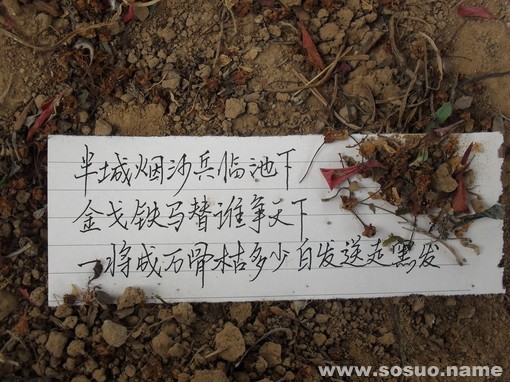 半城烟沙兵临池下
金戈铁马替谁争天下
一将成万骨枯多少白发送走黑发
www.sosuo.name